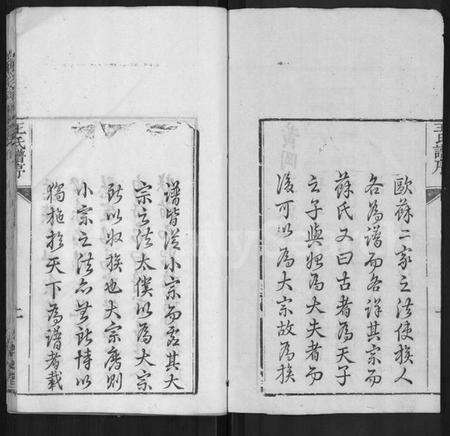 歐蘇二家之法使族人
各為譜而各詳其宗而
蘇氏又曰古者為天子
之子與始為大夫者而
後可以為大宗故為族
譜皆從小宗而虛其大
宗之法太僕以為大宗
所以收族也大宗廢則
小宗之法亦無所恃以
獨施於天下為譜者載
王氏譜序
王氏譜序